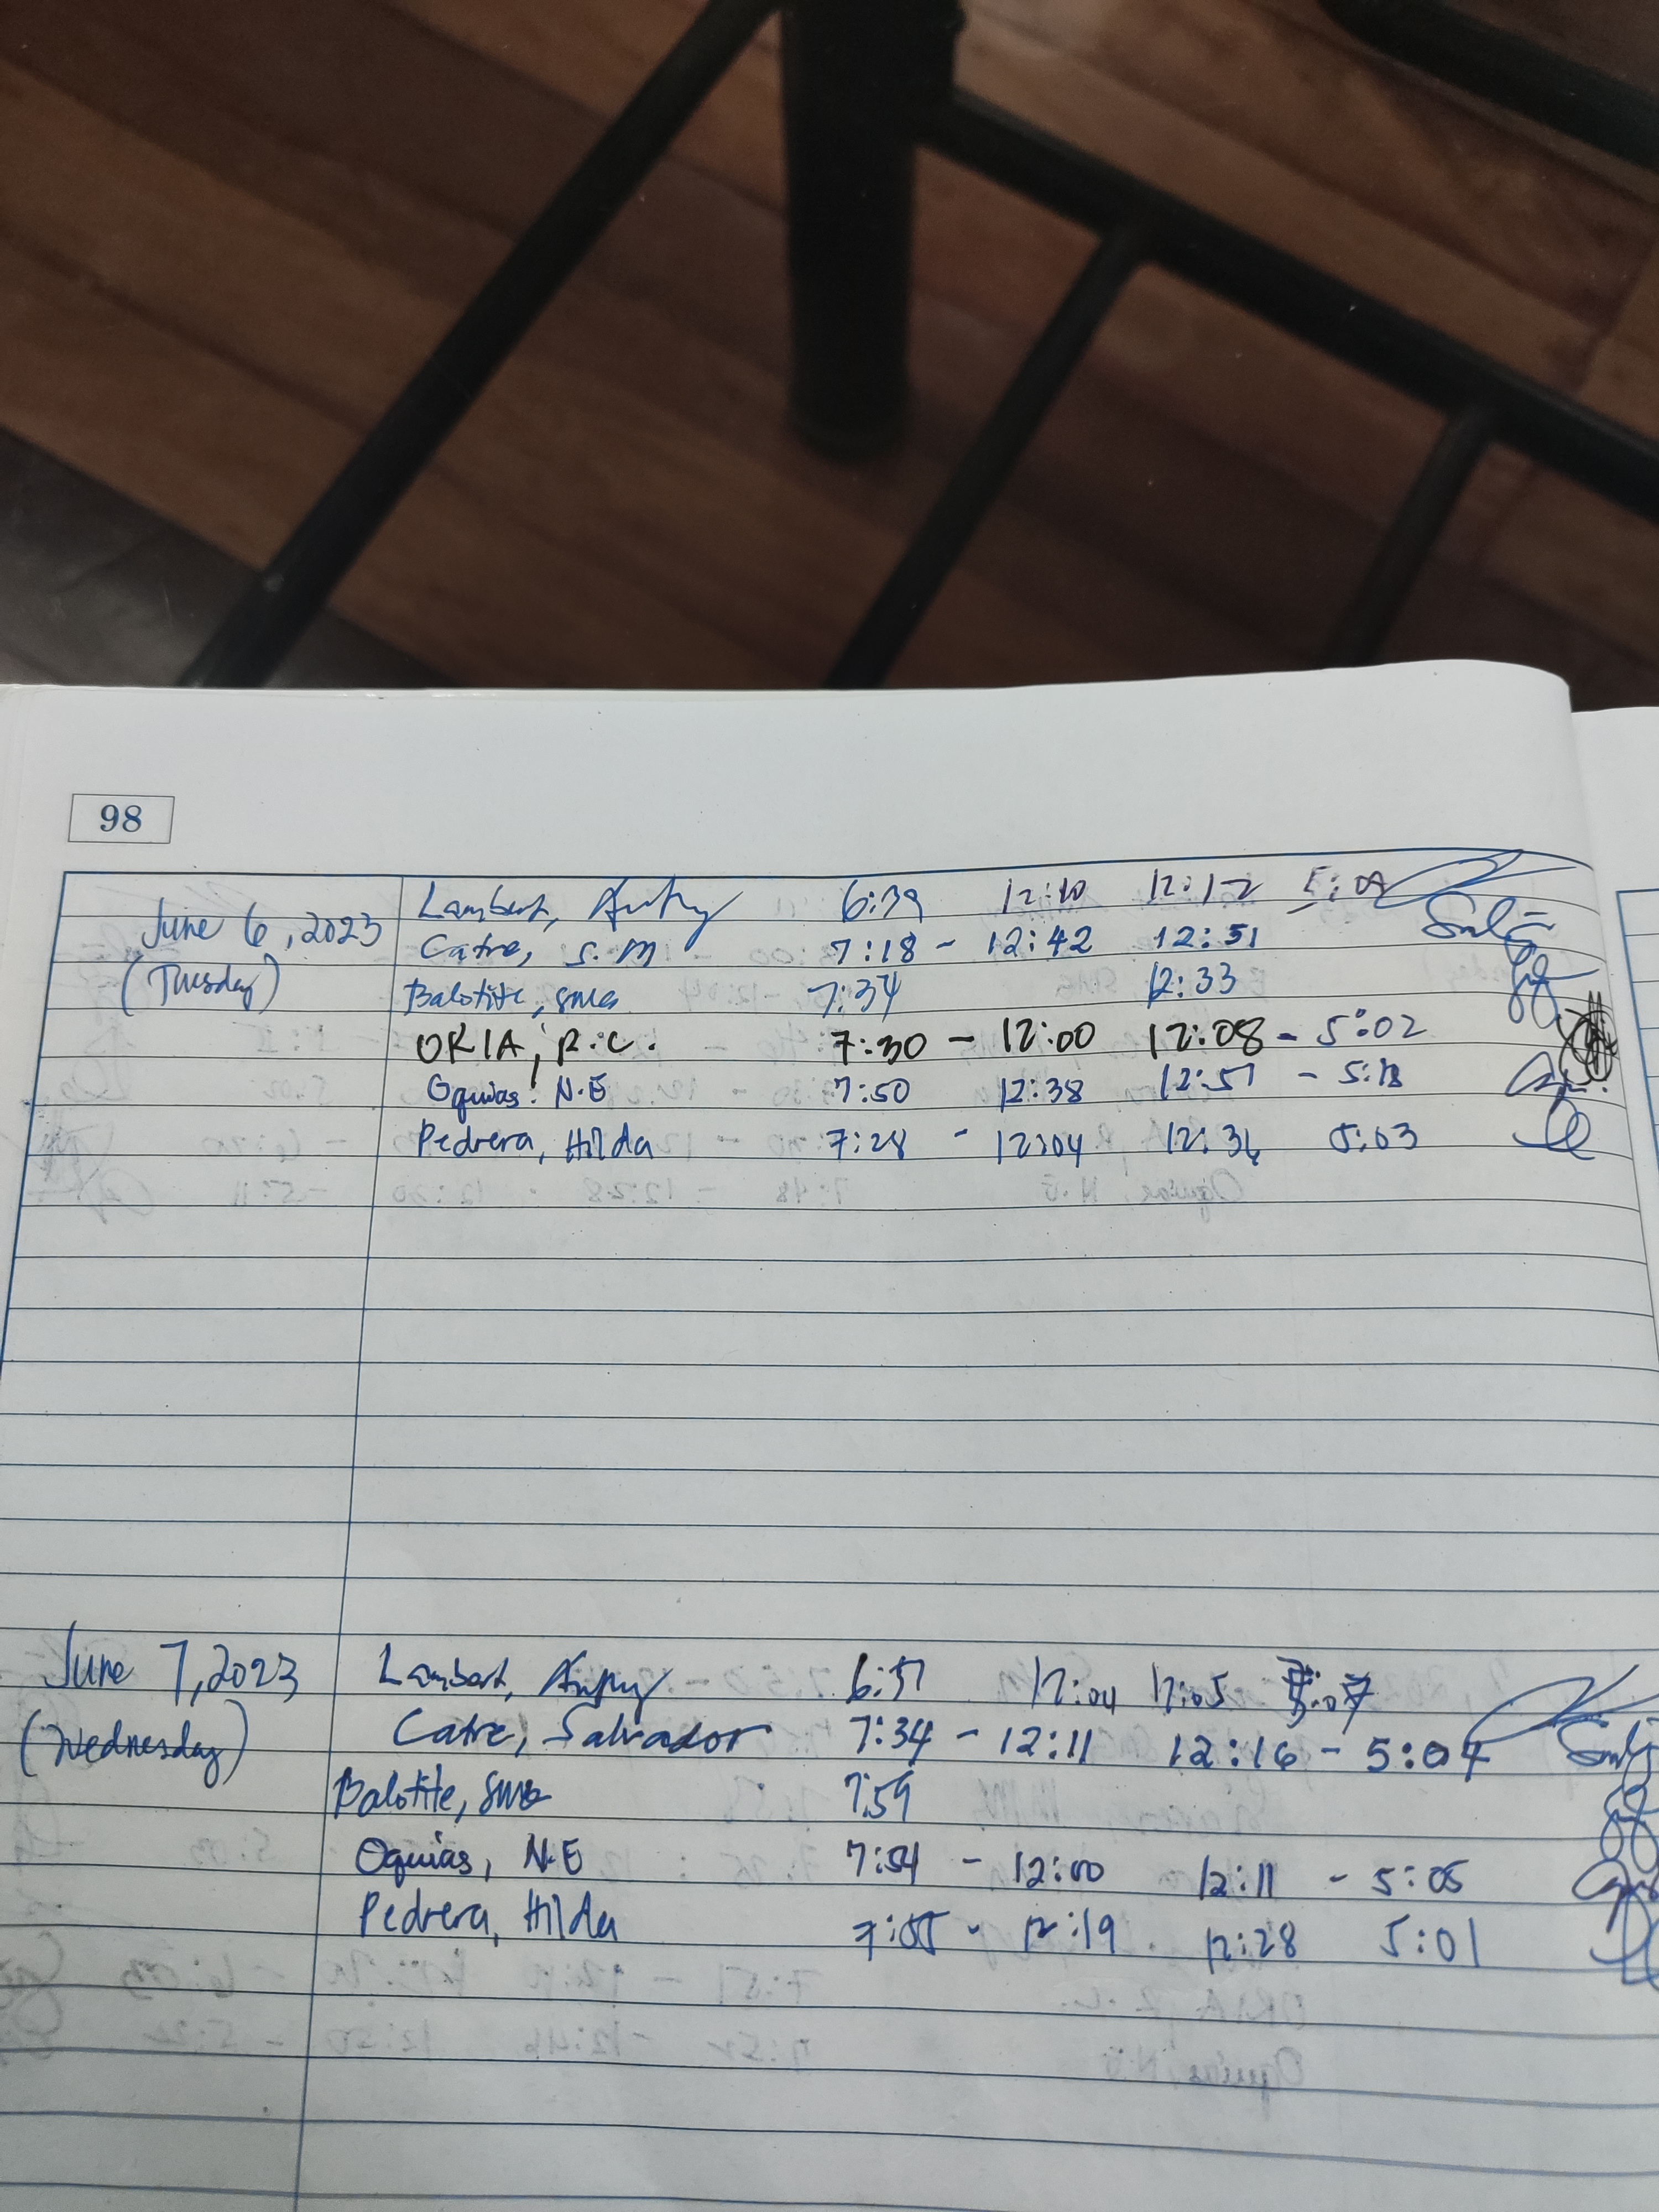 98
June 6, 2023
(Tuesday)
Lambert, 6:39 12:10 12:12
Catre, S.M 7:18 - 12:42 12:51
Balotite, 7:34 12:33
ORIA, R.C. 7:30 - 12:00 12:08 - 5:02
Oquias, N.E 7:50 12:38 12:51 - 5:18
Pedrera, Hilda 7:28 - 12:04 12:36 5:03
June 7, 2023
(Wednesday)
Lambert, 6:51 12:04 12:05
Catre, Salvador 7:34 - 12:11 12:16 - 5:04
Balotite, 7:59
Oquias, N.E 7:54 - 12:00 12:11 - 5:05
Pedrera, Hilda 7:55 - 12:19 12:28 5:01